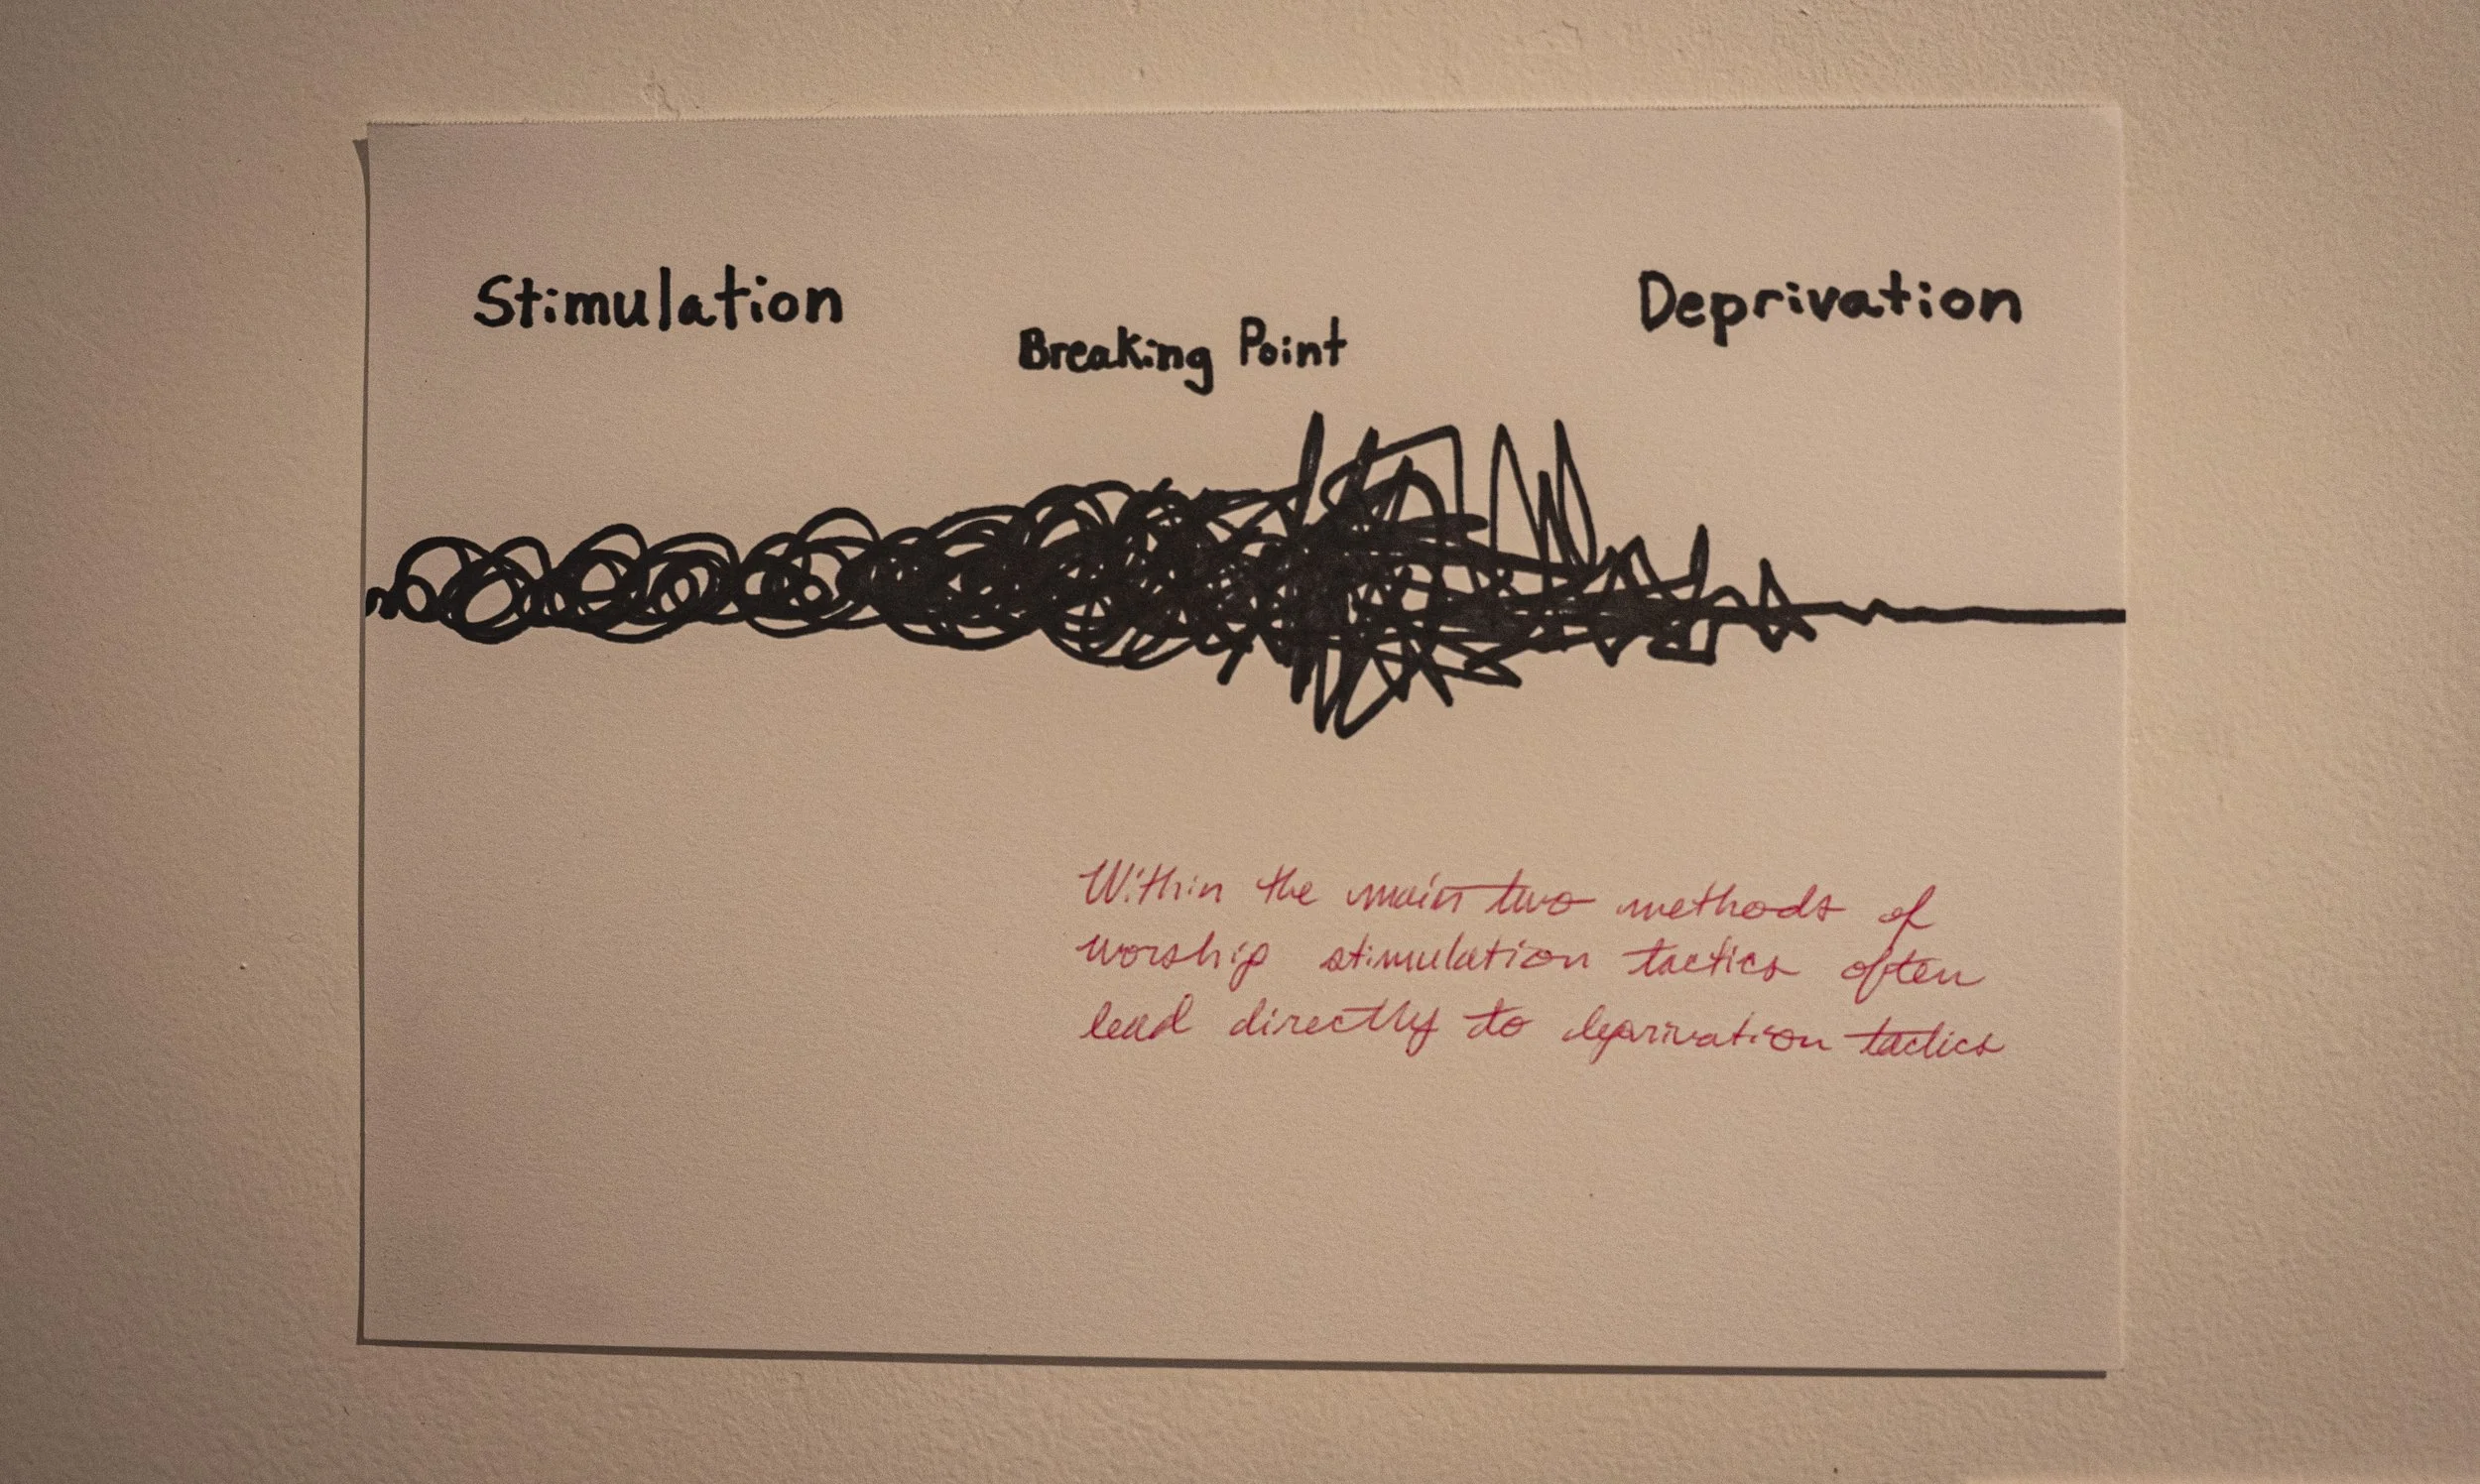 Stimulation
Breaking Point
Deprivation
Within the main two methods of
worship stimulation tactics often
lead directly to deprivation tactics